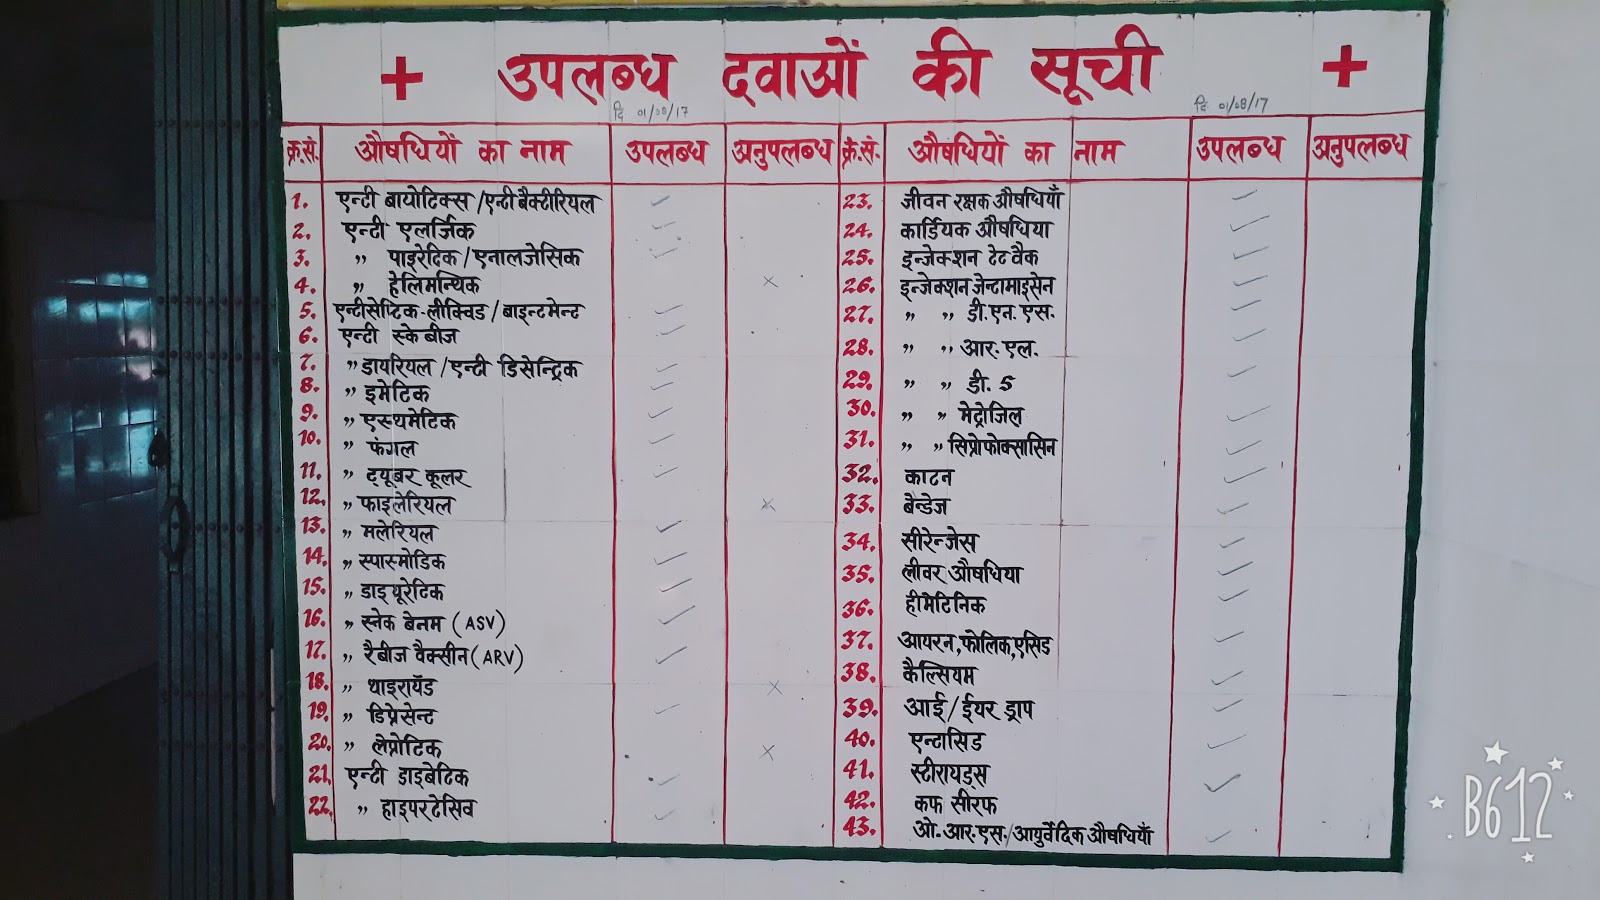 + उपलब्ध दवाओं की सूची +
दि 01/08/17 दि. 01/08/17
क्र.सं. औषधियों का नाम उपलब्ध अनुपलब्ध क्रं.सं. औषधियों का नाम उपलब्ध अनुपलब्ध
1. एन्टी बायोटिक्स /एन्टी बैक्टीरियल ✓
2. एन्टी एलर्जिक ✓
3. " पाइरेटिक/एनालजेसिक ✓
4. " हेलिमन्थिक ×
5. एन्टीसेप्टिक-लीक्विड / बाइन्टमेन्ट ✓
6. एन्टी स्केबीज ✓
7. " डायरियल /एन्टी डिसेन्ट्रिक ✓
8. " इमेटिक ✓
9. " एस्थमेटिक ✓
10. " फंगल ✓
11. " ट्यूबर कूलर ✓
12. " फाइलेरियल ×
13. " मलेरियल ✓
14. " स्पास्मोडिक ✓
15. " डाइयूरेटिक ✓
16. " स्नेक बेनम (ASV) ✓
17. " रैबीज वैक्सीन (ARV) ✓
18. " थाइरायॅड ×
19. " डिप्रेसेन्ट ✓
20. " लेप्रोटिक ×
21. एन्टी डाइबेटिक ✓
22. " हाइपरटेंसिव ✓
23. जीवन रक्षक औषधियाँ ✓
24. कार्डियक औषधिया ✓
25. इन्जेक्शन टेट वैक ✓
26. इन्जेक्शन जेन्टामाइसेन ✓
27. " " डी.एन.एस. ✓
28. " " आर.एल. ✓
29. " " डी. 5 ✓
30. " " मेट्रोजिल ✓
31. " " सिप्रोफोक्सासिन ✓
32. काटन ✓
33. बैन्डेज ✓
34. सीरेन्जेस ✓
35. लीवर औषधिया ✓
36. हीमेटिनिक ✓
37. आयरन,फोलिक,एसिड ✓
38. कैल्सियम ✓
39. आई/ईयर ड्राप ✓
40. एन्टासिड ✓
41. स्टीरायड्स ✓
42. कफ सीरफ
43. ओ.आर.एस./आयुर्वेदिक औषधियाँ ✓
B612